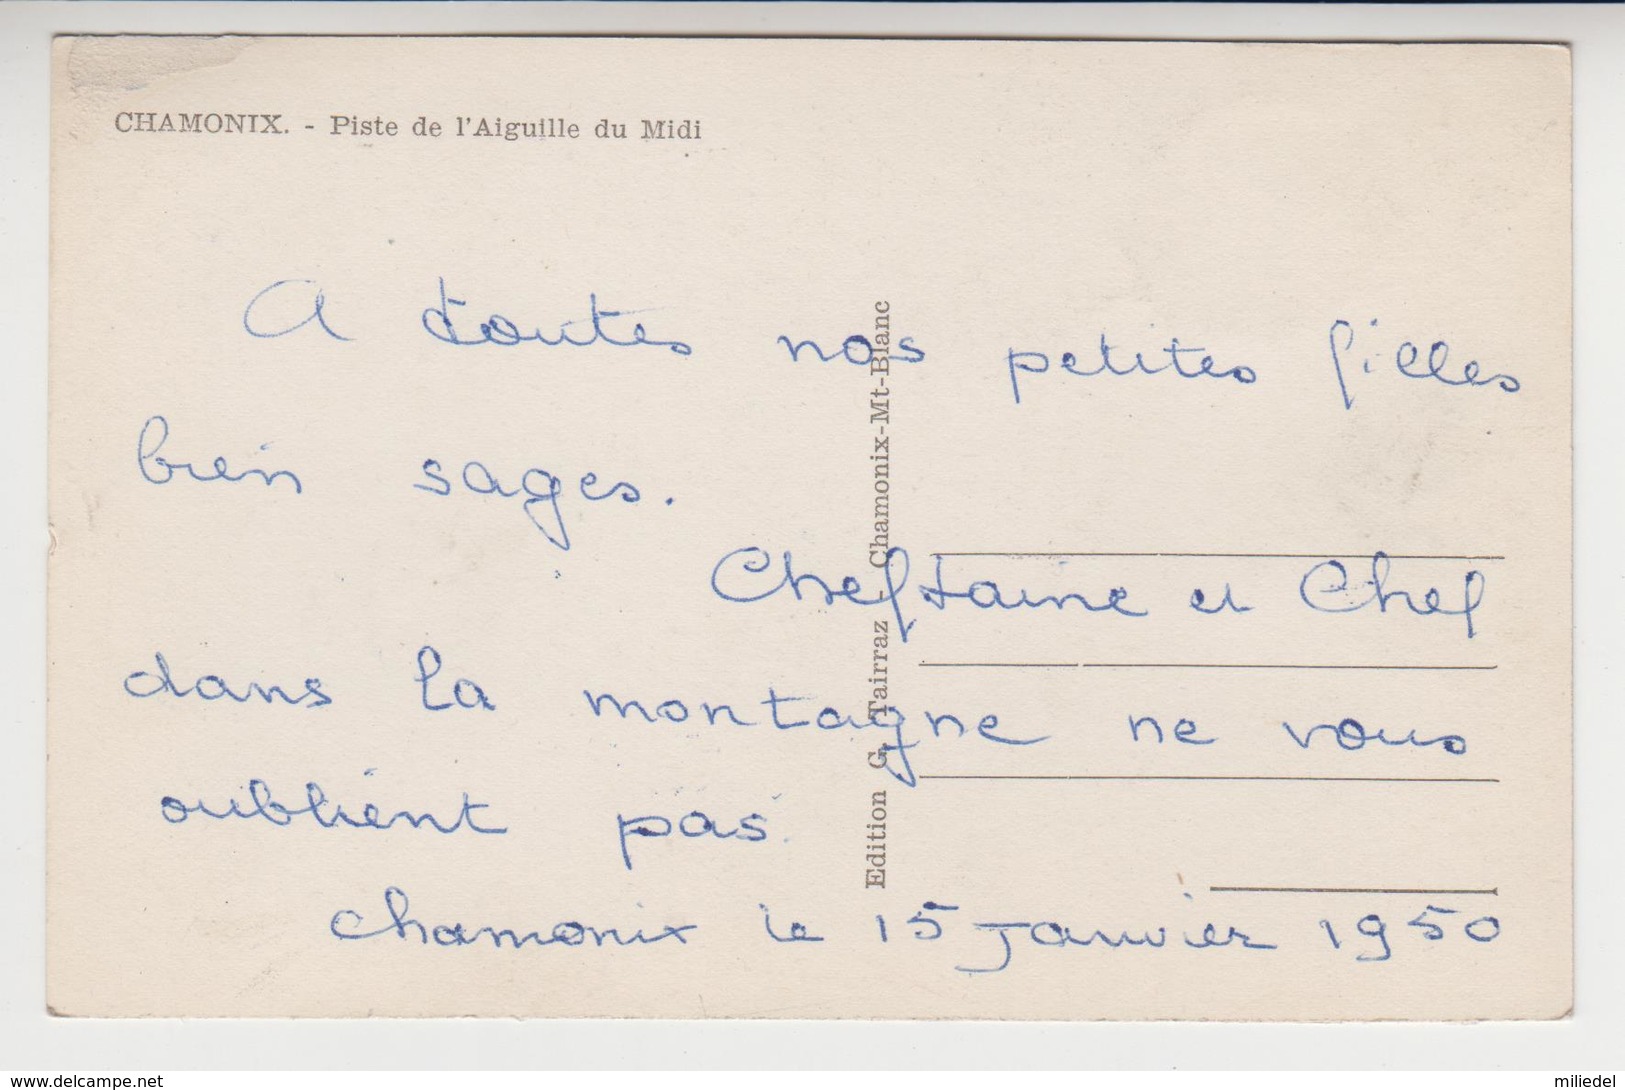 CHAMONIX. - Piste de l'Aiguille du Midi
A toutes nos petites filles
bien sages.
Cheftaine et Chef
dans la montagne ne vous
oublient pas.
Chamonix le 15 Janvier 1950
Edition G. Tairraz - Chamonix-Mt-Blanc
www.delcampe.net
miliedel